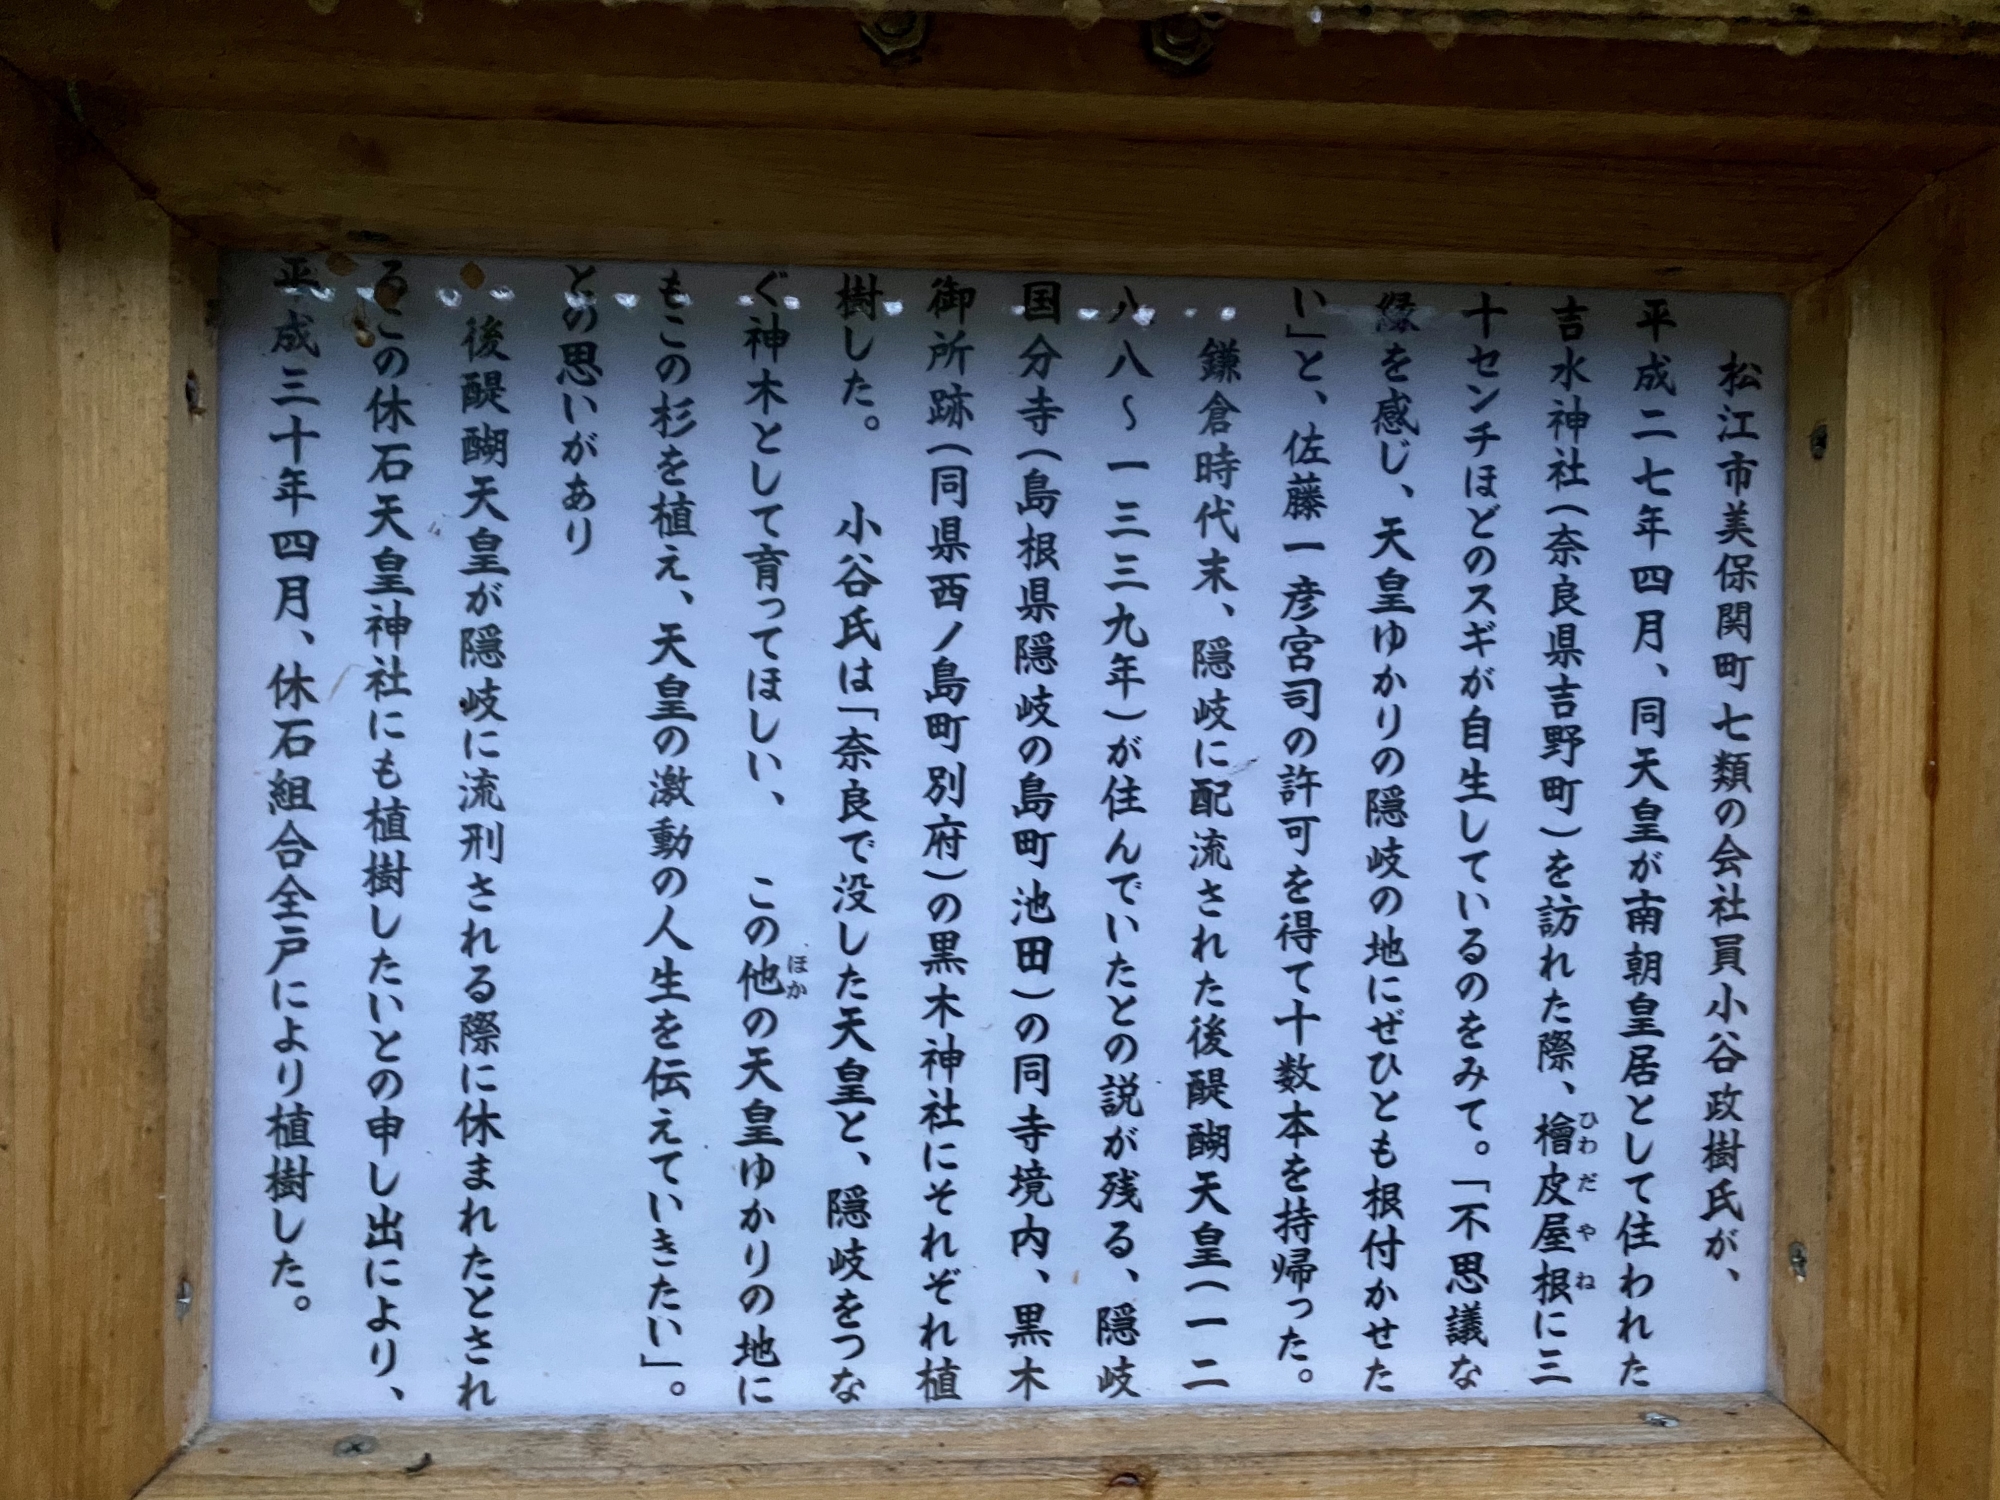 松江市美保関町七類の会社員小谷政樹氏が、
平成二七年四月、同天皇が南朝皇居として住われた
吉水神社(奈良県吉野町)を訪れた際、檜皮屋根に三
ひわだやね
十センチほどのスギが自生しているのをみて。「不思議な
縁を感じ、天皇ゆかりの隠岐の地にぜひとも根付かせた
い」と、佐藤一彦宮司の許可を得て十数本を持帰った。
鎌倉時代末、隠岐に配流された後醍醐天皇(一二
八八～一三三九年)が住んでいたとの説が残る、隠岐
国分寺(島根県隠岐の島町池田)の同寺境内、黒木
御所跡(同県西ノ島町別府)の黒木神社にそれぞれ植
樹した。 小谷氏は「奈良で没した天皇と、隠岐をつな
ぐ神木として育ってほしい、 この他の天皇ゆかりの地に
ほか
もこの杉を植え、天皇の激動の人生を伝えていきたい」。
との思いがあり
後醍醐天皇が隠岐に流刑される際に休まれたとされ
るこの休石天皇神社にも植樹したいとの申し出により、
平成三十年四月、休石組合全戸により植樹した。